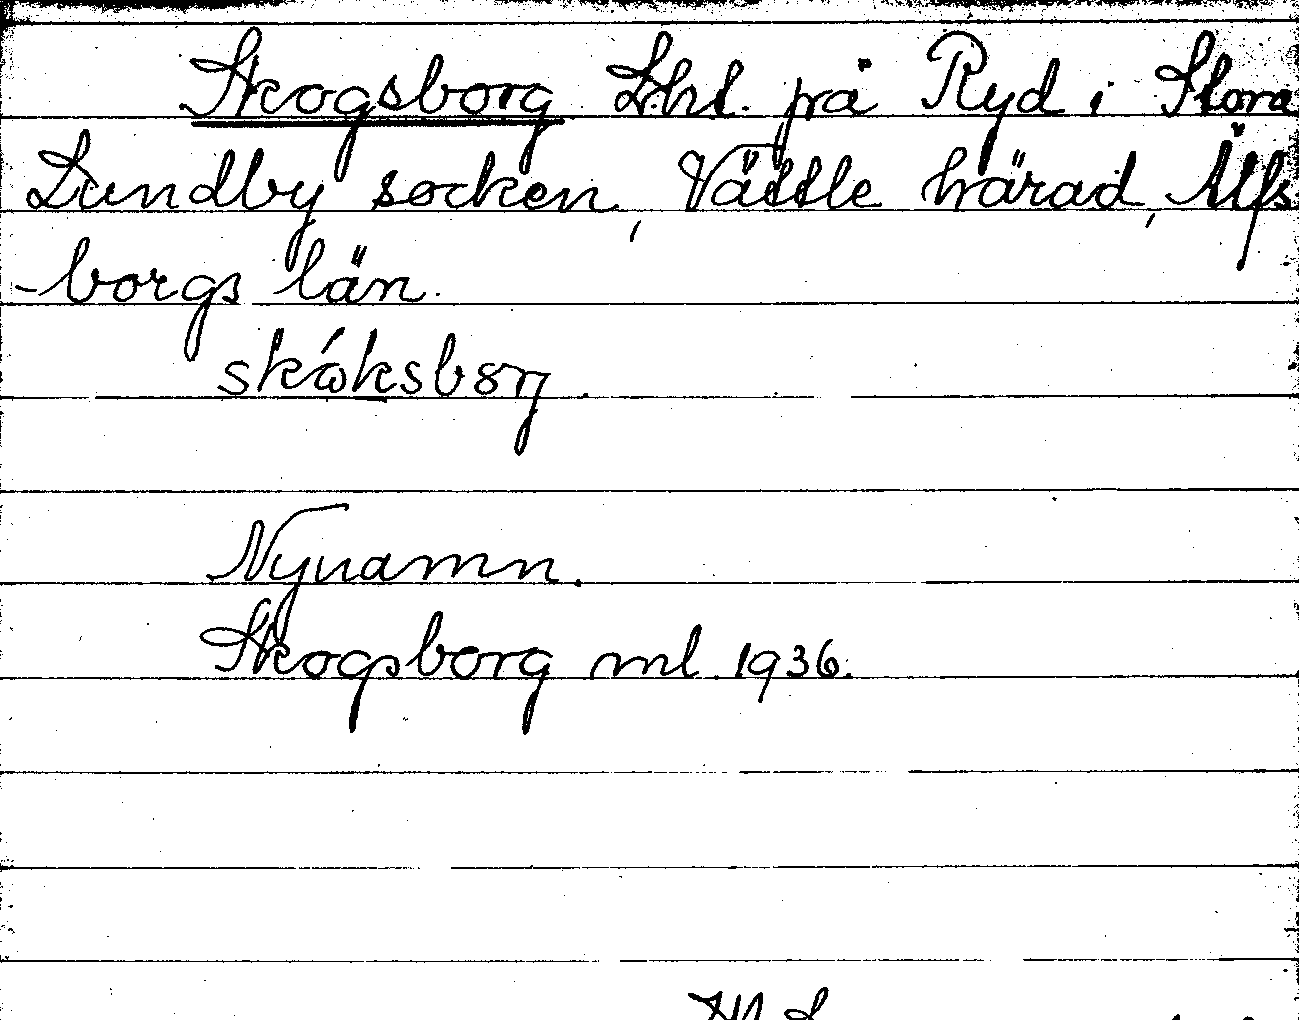 Skogsborg Lht. på Ryd i Stora
Lundby socken, Vättle härad, Älfs
-borgs län.
skɷ́ksbɔrj.
Nynamn.
Skogsborg ml. 1936.